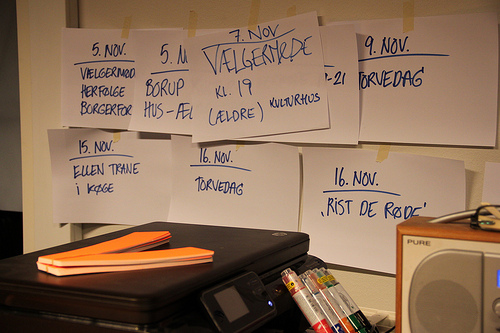 5. NOV.
VÆLGERMØD
HERFØLGE
BORGERFOR
5. N
BORUP
HUS-ÆL
7. NOV
VÆLGERMØDE
KL. 19
(ÆLDRE) KULTURHUS
-21
9. NOV.
TORVEDAG
15. NOV.
ELLEN TRANE
i KØGE
16. NOV.
TORVEDAG
16. NOV.
'RIST DE RØDE'
PURE
hp